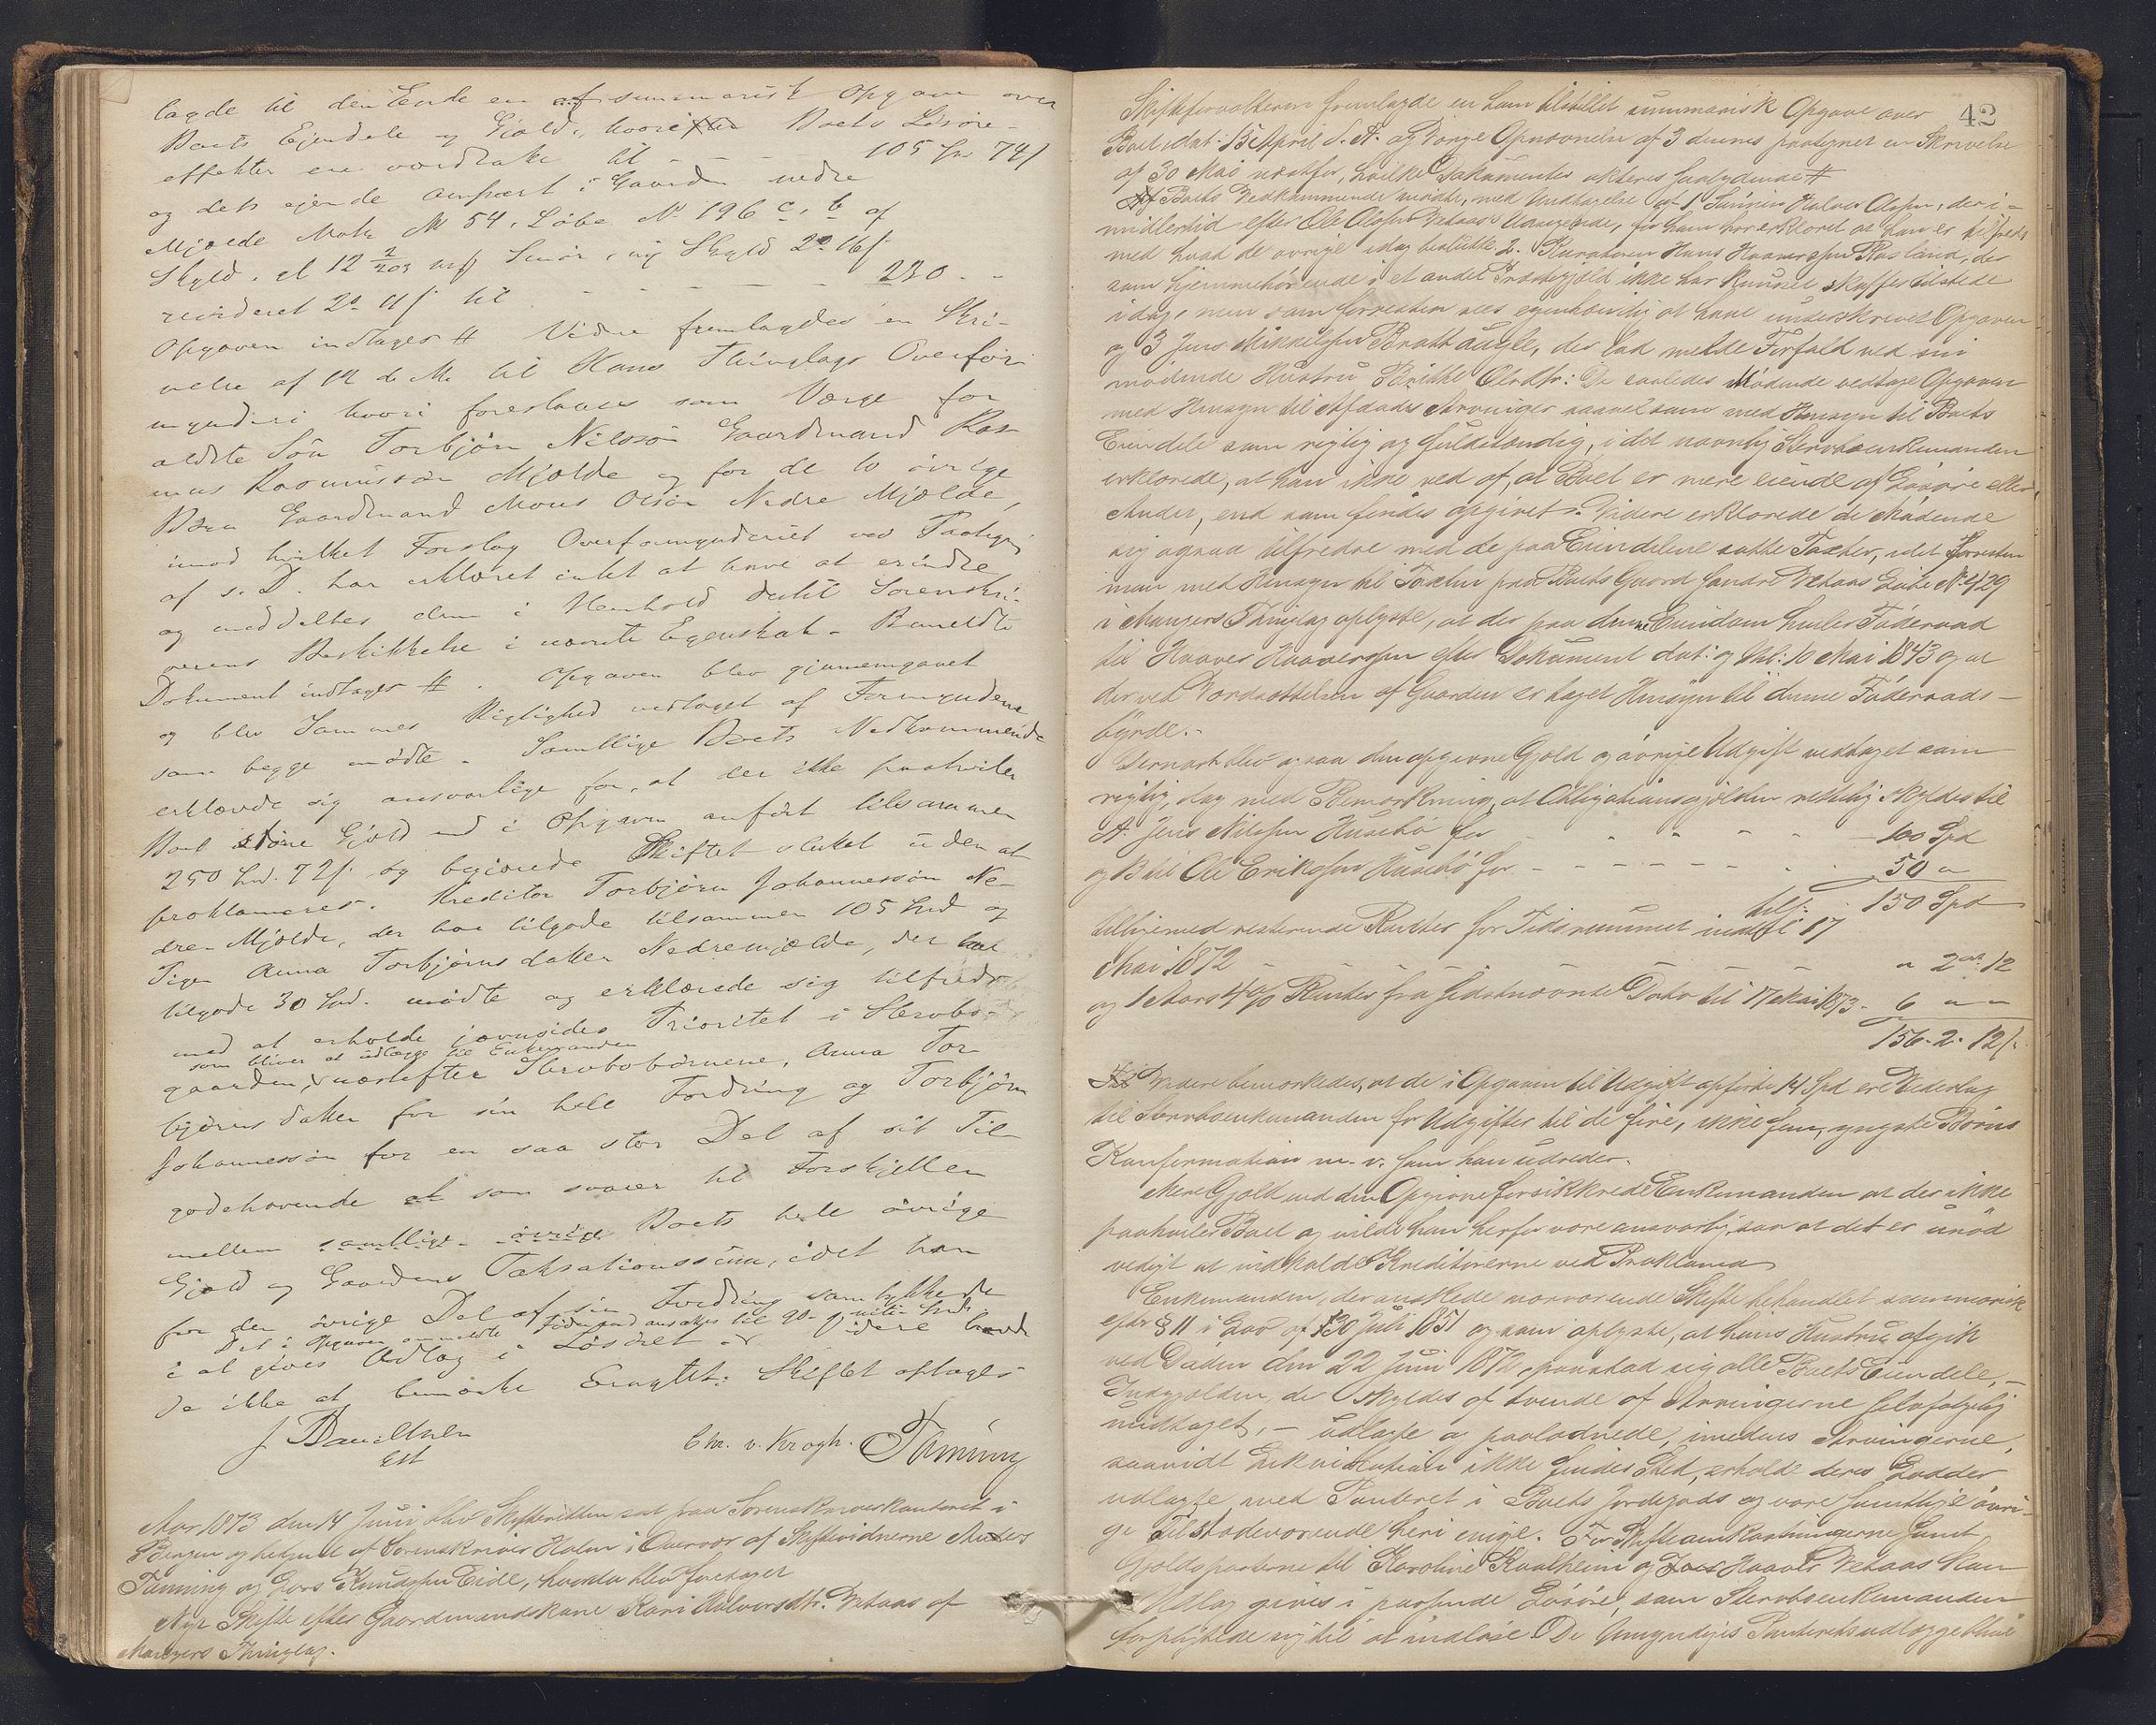 lagde til den Ende en af summarisk Opgave over
Boets Ejendele og Gjæld, hvori Boets Løsøre-
effekter ere værdsatte til - - - - 105 Spd 74 /
og dets ejende anpart i Gaarden nedre
Mjælde Matr № 54, Løbe № 196 c, b af
Skyld, at 12 Smør, ny Skyld 2 16 f
revideret 2 11 f til - - - - - - 230 - -
Opgaven indtages #. Videre fremlagdes en Skri-
velse af 12 d. M. til Haus Thinglags Overfor-
mynderi hvori foreslaaes som Værge for
ældste Søn Torbjørn Nilssøn Gaardmand Ras-
mus Rasmussøn Mjælde og for de to øvrige
Børn Gaardmand Mons Olsøn Nedre Mjælde,
imod hvilket Forslag Overformynderiet ved Paategn
af s. D. har erklæret intet at have at erindre
og meddeltes dem i Henhold dertil Sorenskri-
verens Beskikkelse i nævnte Egenskab. Bemeldte
Dokument indtages #. Opgaven blev gjennemgaaet
og blev Sammes Rigtighed vedtaget af Formynderne
som begge mødte. Samtlige Boets Vedkommende
erklærede sig ansvarlige for, at der ikke paahviler
Boet større Gjæld end i Opgaven anført tilsammen
250 Spd. 72 f. og begjærede Skiftet sluttet uden at
proklameres. Kreditor Torbjørn Johannessøn Ne-
dre Mjælde, der har tilgode tilsammen 105 Spd og
Pigen Anna Torbjørnsdatter Nedremjælde, der har
tilgode 30 Spd. mødte og erklærede sig tilfreds
med at erholde jevnsides Prioritet i Stervbo-
som bliver at udlægge til Enkemanden
gaarden, næstefter Stervbobørnene, Anna Tor-
bjørnsdatter for sin hele Fordring og Torbjørn
Johannessøn for en saa stor Del af sit Til-
godehavende at som svarer til Forskjellen
mellem samtlige øvrige Boets hele øvrige
Gjæld og Gaardens Taksationssum, idet han
for den øvrige Del af sin Fordring samtykkede
Det i Opgaven anmeldte Føderaad ansattes til 90
i at gives Udlag i Løsøret. Videre havde
de ikke at bemærke Eragtet: Skiftet optages
J Danielsen
Est
Chr. v. Krogh. Tanning
Aar 1873 den 14 Juni blev Skifteretten sat paa Sorenskriverkontoret i
Bergen og betjent af Sorenskriver Holm i Overvær af Skiftevidnerne Anders
Tanning og Lars Knudssen Eide, hvorda blev foretaget
Nyt Skifte efter Gaardmandskone Kari Halvorsdtr. Vetaas af
Mangers Thinglag.
42
Skifteforvalteren fremlagde en ham tilstillet summarisk Opgave over
Boet dat: 15 April d. A. og Værge Opnævnelse af 3 dennes paategnet en Skrivelse
af 30 Mai næstfør, hvilke Dokumenter akteres saalydende #
Af Boets Vedkommende mødte, med Undtagelse af 1 Halvor Olsen, der i-
midlertid efter Ole Olsen Vetaas Udsigende, for ham har erklæret at han er tilfreds
med hvad de øvrige idag beslutte. 2. Kuratoren Hans Haaversen Risland, der
som hjemmehørende i et andet Præstegjæld ikke har kunnet skaffes tilstede
idag, men som forresten sees egenhændig at have underskrevet Opgaven
og 3 Jens Mikkelsen Brattaugle, der lod melde Forfald ved sin
mødende Hustru Brithe Olsdtr: De saaledes Mødende vedtage Opgaven
med Hensyn til Afdødes Arvinger saavelsom med Hensyn til Boets
Eiendele som rigtig og fuldstændig, idet navnlig Stervboenkemanden
erklærede, at han ikke ved af, at Boet er mere eiende af Løsøre eller
Andet, end som findes opgivet. Videre erklærede de Mødende
sig ogsaa tilfredse med de paa Eiendelene satte Taxter, idet forresten
man med Hensyn til Taxten paa Boets Gaard Søndre Vetaas Løbe № 429
i Mangers Thinglag oplyste, at der paa denne Eiendom hviler Føderaad
til Haaver Haaversen efter Dokument dat: og thl: 10 Mai 1843 og at
der ved Værdsættelsen af Gaarden er taget Hensyn til denne Føderaads-
byrde.-
Dernæst blev ogsaa den opgivne Gjæld og øvrige Udgift vedtaget som
rigtig, dog med Bemærkning, at Obligationsgjælden rettelig skyldes til
A. Jens Nilssen Husebø for - - - - - 100 Spd
og B til Ole Eriksen Husebø for - - - - - - 50 "
tils: 150 Spd
tilligemed resterende Renter for Tidsrummet indtil 17
Mai 1872 - - - - - - - " 2 12
og 1 Aars 4% Renter fra sidstnævnte Dato til 17 Mai 1873 - 6 " "
156. 2. 12 f.
Videre bemærkedes, at de i Opgaven til Udgift opførte 14 Spd ere Vederlag
til Stervboenkemanden for Udgifter til de fire, ikke fem, yngste Børns
Konfirmation m. v. som han udreder.
Mere Gjæld end den Opgivne forsikkrede Enkemanden at der ikke
paahviler Boet og vilde han herfor være ansvarlig, saa at det er unød
vedigt at indkalde Kreditorerne ved Proklama
Enkemanden, der ønskede nærværende Skifte behandlet summarisk
efter § 11 i Lov af 30 Juli 1851 og som oplyste, at hans Hustru afgik
ved Døden den 22 Juni 1872, paastod sig alle Boets Eiendele, -
Indgjælden, der skyldes af tvende af Arvingerne selvfølgelig
undtaget, - udlagte og paalodnede, imedens Arvingerne,
saavidt Likvidation ikke finder Sted, erholde deres Lodder
udlagte med Panteret i Boets Jordegods og vare samtlige øvri-
ge Tilstedeværende heri enige. For Skifteomkostningerne samt
Gjældsposterne til Karoline Kvalheim og Haaver Vetaas kan
Udlag gives i passende Løsøre, som Stervboenkemanden
forpligtede sig til at indløse. De Umyndiges Panteretsudlæg blive